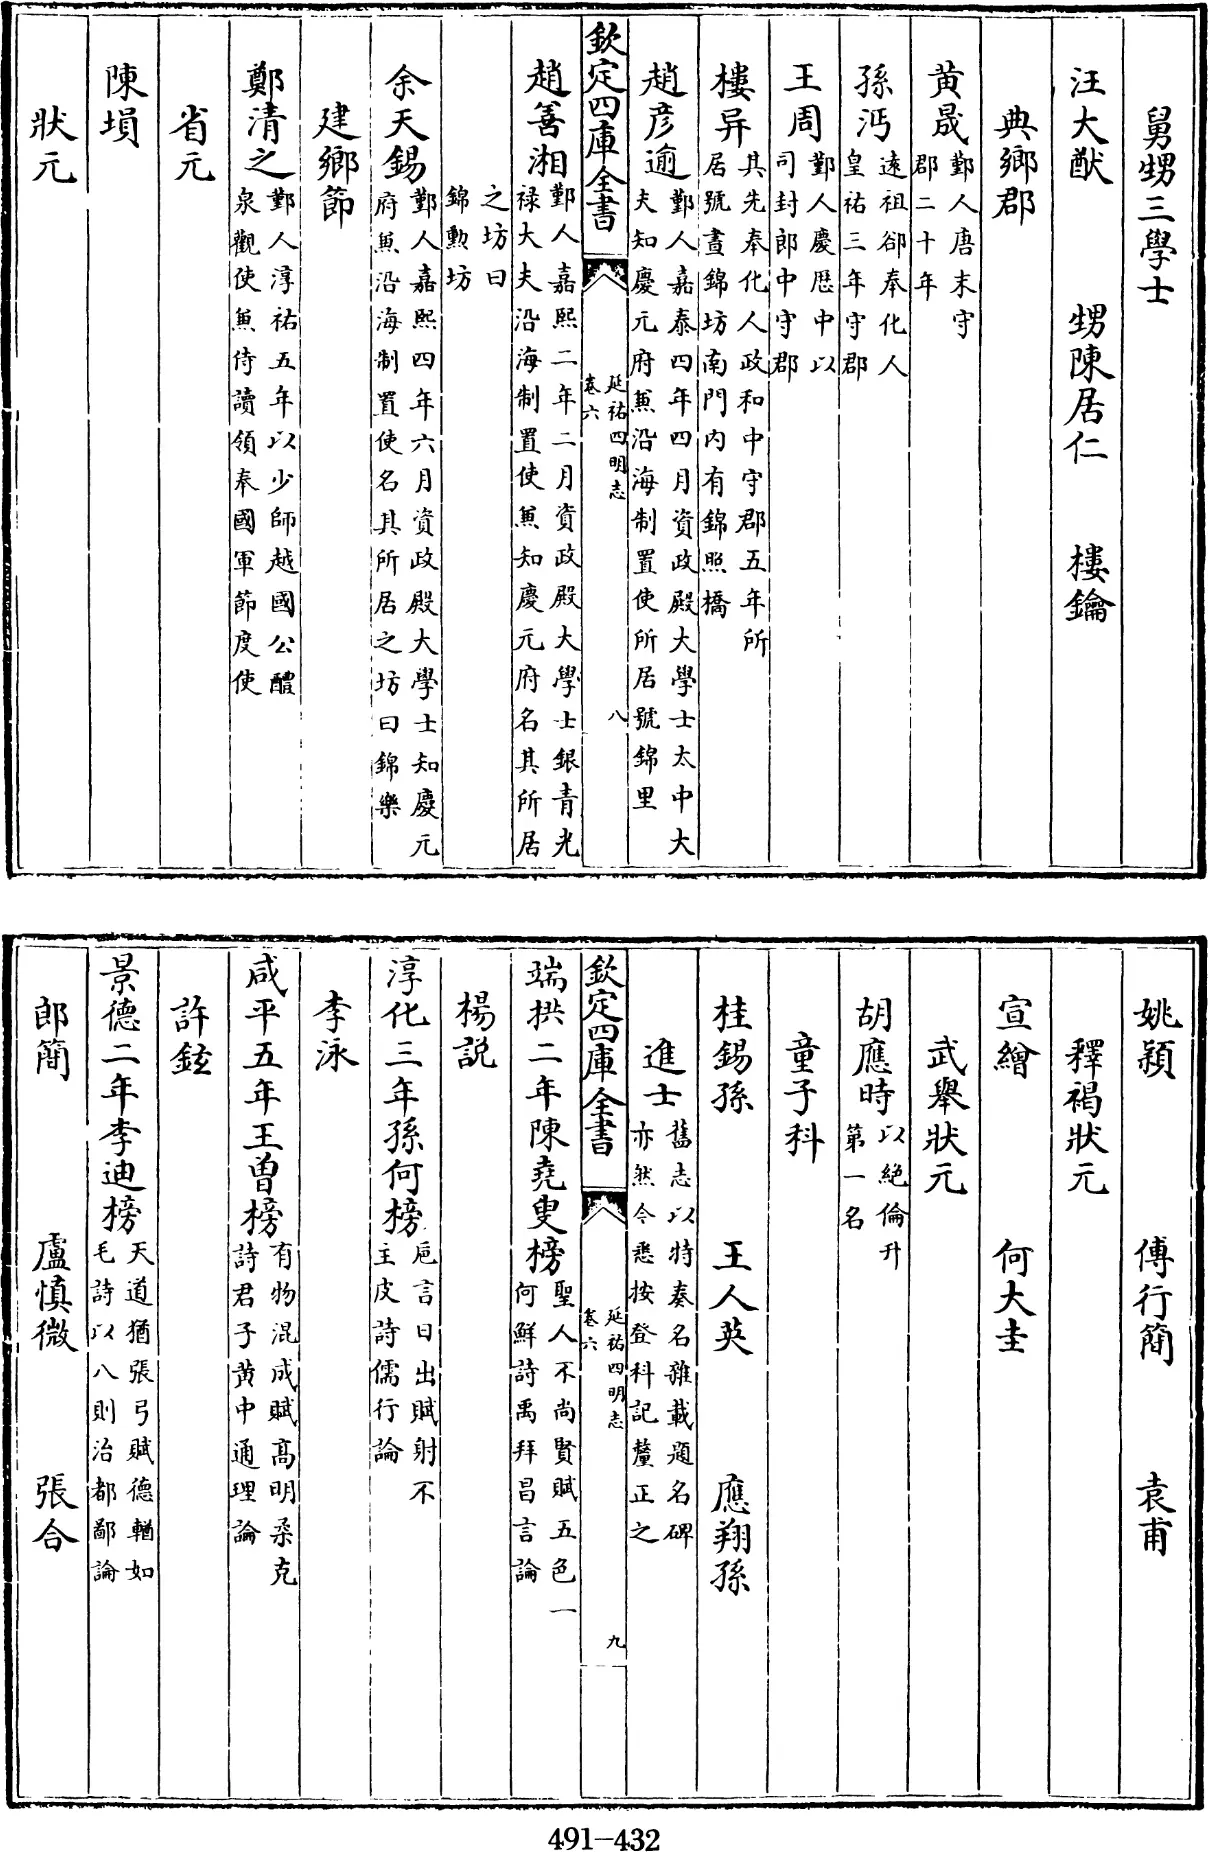 舅甥三學士
汪大猷 甥陳居仁 樓鑰
典鄉郡
黄晟鄞人唐末守郡二十年
孫沔遠祖郤奉化人皇祐三年守郡
王周鄞人慶厯中以司封郎中守郡
樓异其先奉化人政和中守郡五年所居號晝錦坊南門内有錦照橋
趙彦逾鄞人嘉泰四年四月資政殿大學士太中大夫知慶元府兼沿海制置使所居號錦里
欽定四庫全書 延祐四明志 卷六 八
趙善湘鄞人嘉熙二年二月資政殿大學士銀青光禄大夫沿海制置使兼知慶元府名其所居
之坊曰錦勲坊
余天錫鄞人嘉熙四年六月資政殿大學士知慶元府兼沿海制置使名其所居之坊曰錦樂
建鄉節
鄭清之鄞人淳祐五年以少師越國公醴泉觀使兼侍讀領奉國軍節度使
省元
陳塤
狀元
姚潁 傅行簡 袁甫
釋褐狀元
宣繒 何大圭
武舉狀元
胡應時以絶倫升第一名
童子科
桂錫孫 王人英 應翔孫
進士舊志以特奏名雜載題名碑亦然今悉按登科記釐正之
欽定四庫全書 延祐四明志 卷六 九
端拱二年陳堯叟榜聖人不尚賢賦五色一何鮮詩禹拜昌言論
楊説
淳化三年孫何榜巵言日出賦射不主皮詩儒行論
李泳
咸平五年王曾榜有物混成賦高明柔克詩君子黄中通理論
許鉉
景德二年李迪榜天道猶張弓賦德輶如毛詩以八則治都鄙論
郎簡 盧慎微 張合
491-432